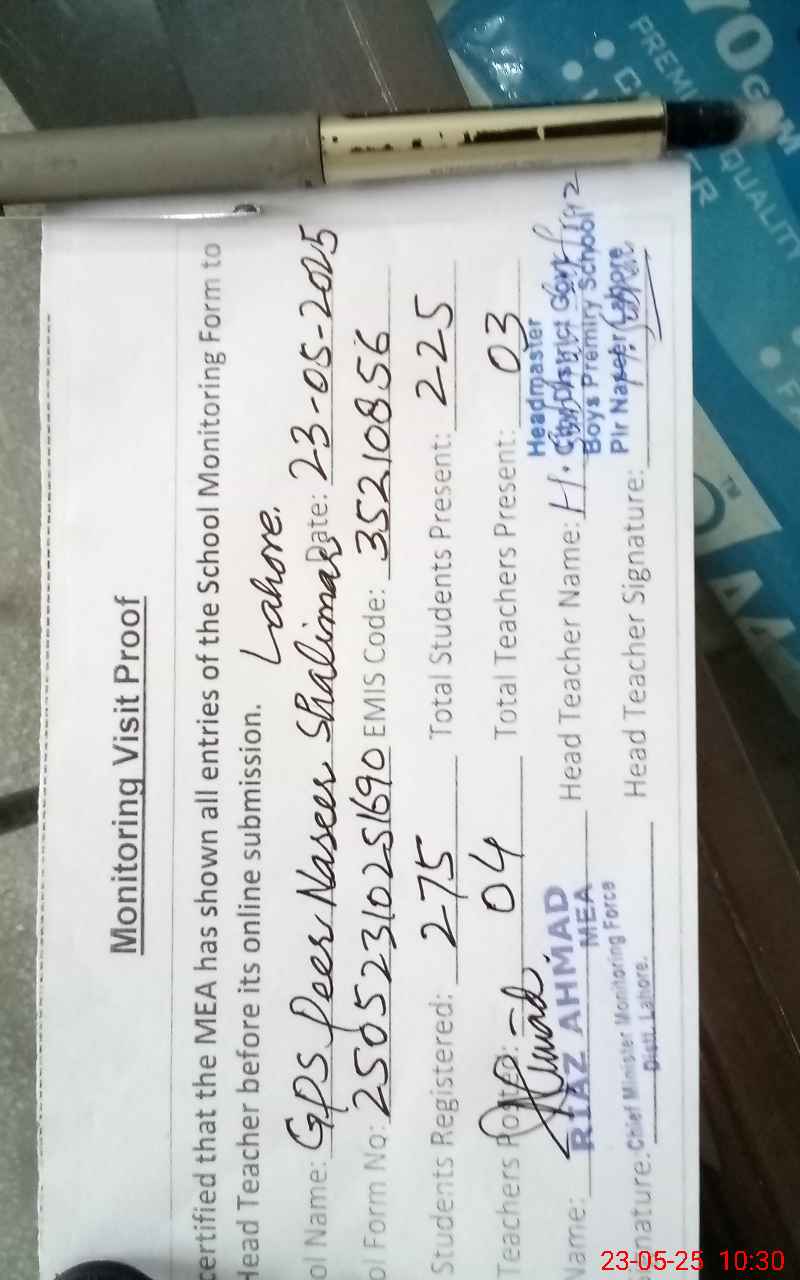 Monitoring Visit Proof
certified that the MEA has shown all entries of the School Monitoring Form to
Head Teacher before its online submission.
Lahore.
ol Name: GPS Peer Naseer Shalimar Date: 23-05-2025
ol Form No: 25052310251690 EMIS Code: 35210856
Students Registered: 275 Total Students Present: 225
Teachers Posted: 04 Total Teachers Present: 03
Name: RIAZ AHMAD
MEA
Head Teacher Name:
Headmaster
City District Govt
Boys Premiry School
Pir Naseer Lahore
nature: Chief Minister Monitoring Force
Distt. Lahore.
Head Teacher Signature:
70 GSM
PREMI
QUALITY
TER
TM
A4
23-05-25 10:30